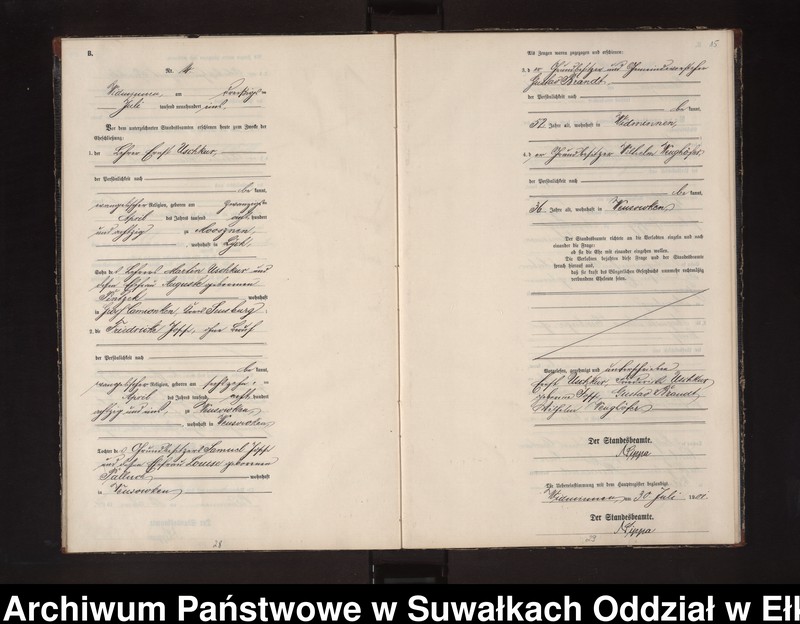 8.
Nr. 4.
Widminnen, am dreißigsten
Juli tausend neunhundert eins
Vor dem unterzeichneten Standesbeamten erschienen heute zum Zwecke der
Eheschließung:
1. der Lehrer Ernst Uschkur,
der Persönlichkeit nach
be kannt,
evangelischer Religion, geboren am
April des Jahres tausend acht hundert
und achtzig zu
, wohnhaft in Lyck,
Sohn des Lehrers Martin Uschkur und
dessen Ehefrau Auguste geborenen
wohnhaft
in Groß Kamionken, Kreis Sensburg;
2. die Friederike Jopp, ohne Beruf
der Persönlichkeit nach
be kannt,
evangelischer Religion, geboren am
April des Jahres tausend acht hundert
achtzig und eins, zu
, wohnhaft in
Tochter des Grundbesitzers Samuel Jopp
und dessen Ehefrau Louise geborenen
wohnhaft
in
28
15.
Als Zeugen waren zugezogen und erschienen:
3. der Grundbesitzer und Gemeindevorsteher
Gustav Brandt,
der Persönlichkeit nach
be kannt,
52 Jahre alt, wohnhaft in Widminnen,
4. der Grundbesitzer Wilhelm
der Persönlichkeit nach
be kannt,
36 Jahre alt, wohnhaft in
Der Standesbeamte richtete an die Verlobten einzeln und nach
einander die Frage:
ob sie die Ehe mit einander eingehen wollen.
Die Verlobten bejahten diese Frage und der Standesbeamte
sprach hierauf aus,
daß sie kraft des Bürgerlichen Gesetzbuchs nunmehr rechtmäßig
verbundene Eheleute seien.
Vorgelesen, genehmigt und unterschrieben
Ernst Uschkur, Friederike Uschkur
geborene Jopp, Gustav Brandt,
Wilhelm
Der Standesbeamte.
Lippa
Die Uebereinstimmung mit dem Hauptregister beglaubigt.
Widminnen, am 30 Juli 1901.
Der Standesbeamte.
Lippa
29
Archiwum Państwowe w Suwałkach Oddział w Ełk